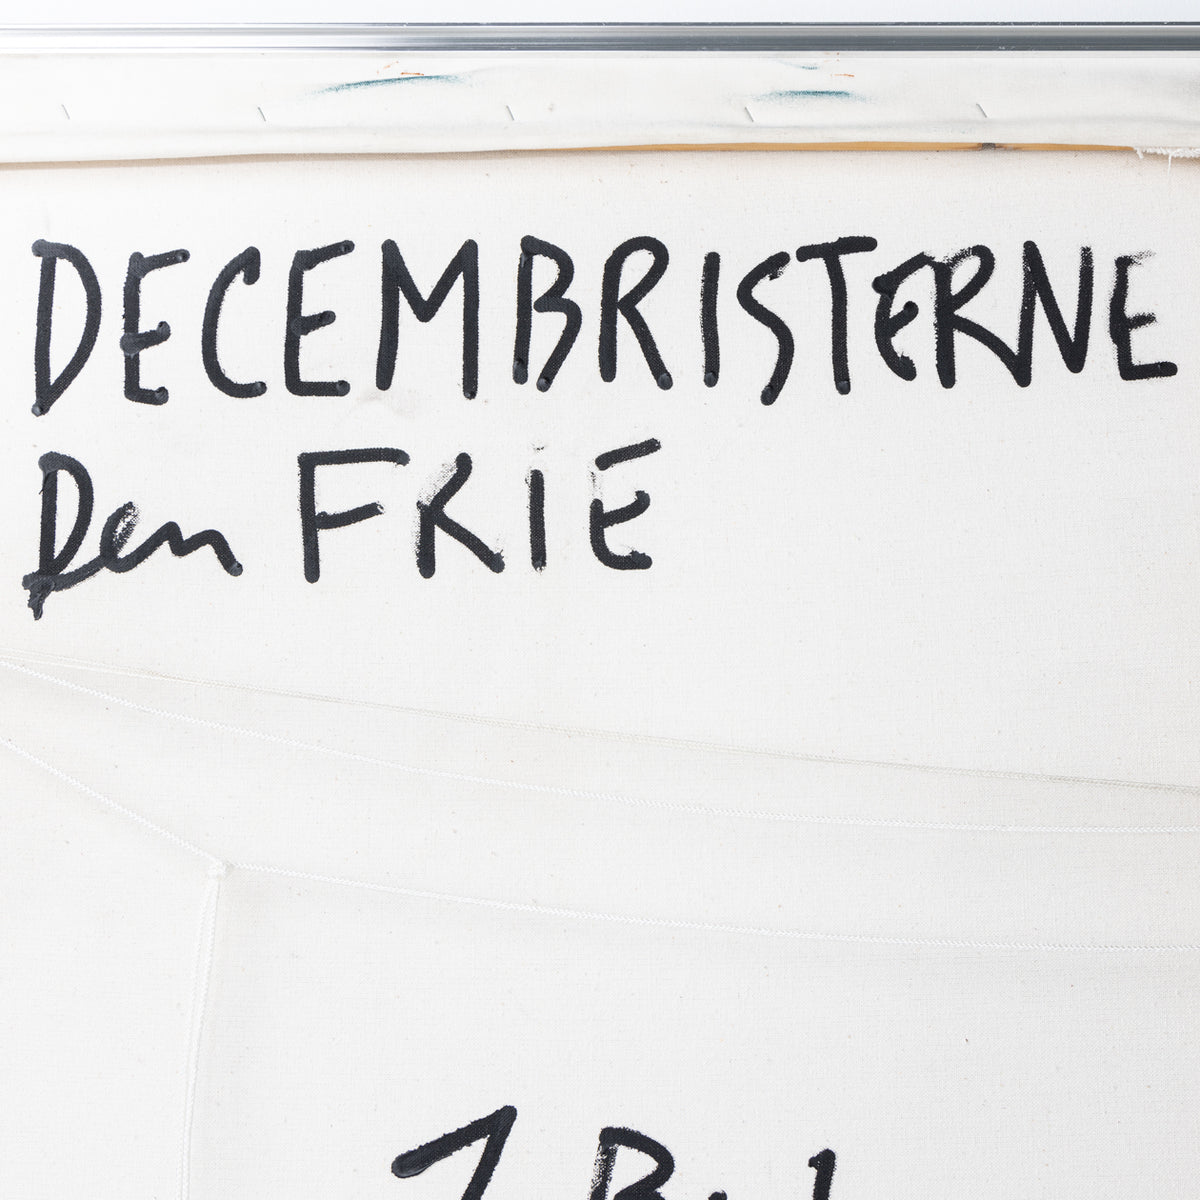 DECEMBRISTERNE
Den FRIE